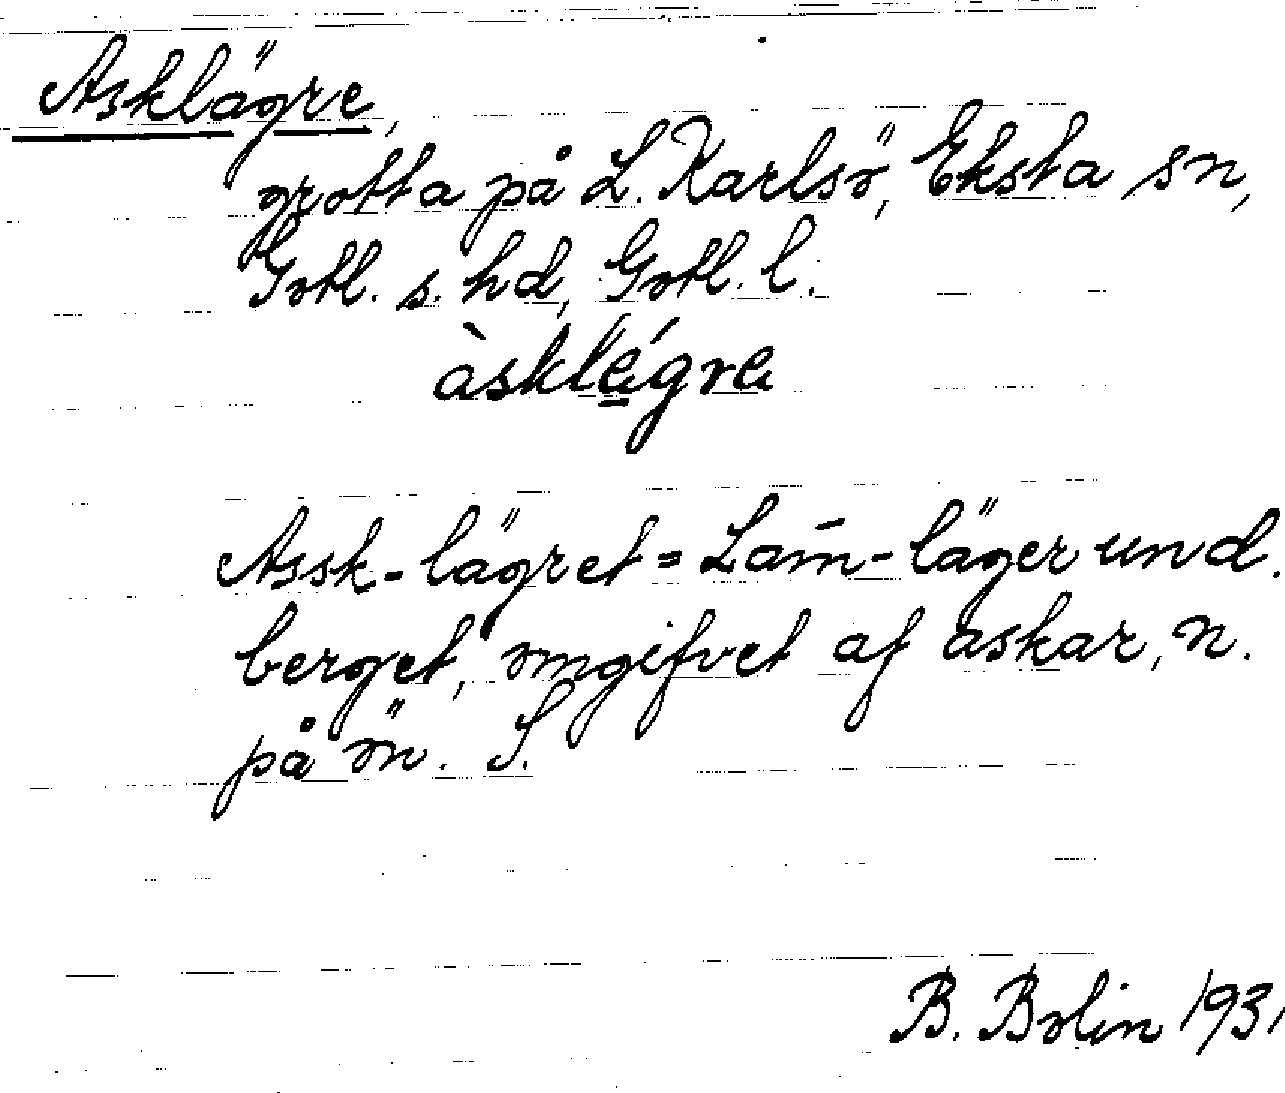 Asklägre,
grotta på L. Karlsö, Eksta sn,
Gotl. s. hd, Gotl. l.
àsklégre
Assk-lägret = Lam̄-läger und.
berget, omgifvet af askar, n.
på ön. S.
B. Bolin 1931